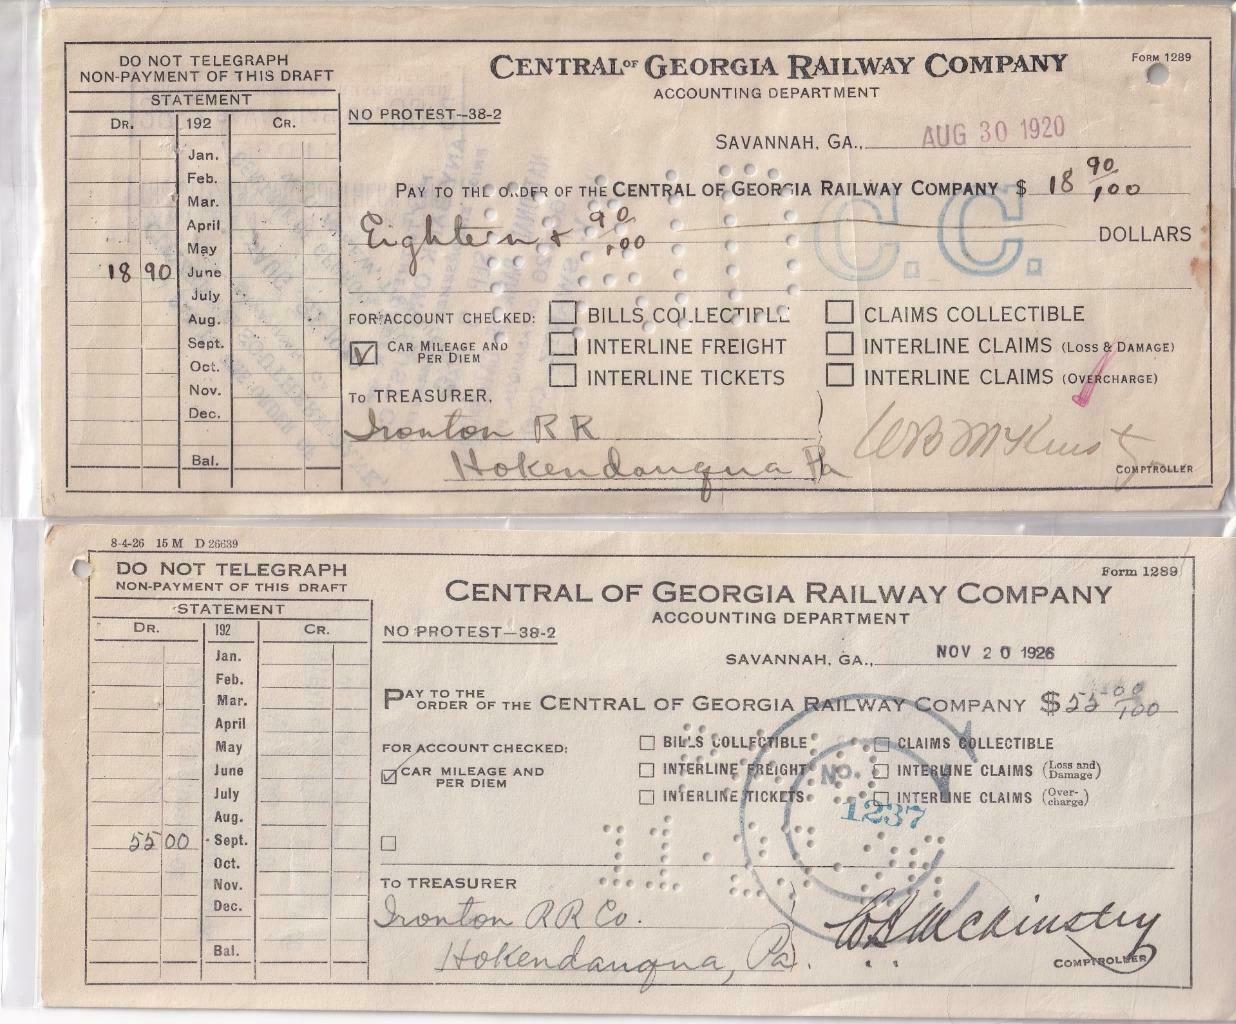 DO NOT TELEGRAPH
NON-PAYMENT OF THIS DRAFT
STATEMENT
DR. 192 CR.
Jan.
Feb.
Mar.
April
May
18 90 June
July
Aug.
Sept.
Oct.
Nov.
Dec.
Bal.
CENTRAL OF GEORGIA RAILWAY COMPANY
FORM 1289
ACCOUNTING DEPARTMENT
NO PROTEST--38-2
SAVANNAH, GA., AUG 30 1920
PAY TO THE ORDER OF THE CENTRAL OF GEORGIA RAILWAY COMPANY $ 18 90/100
Eighteen & 90/100 DOLLARS
C. C.
FOR ACCOUNT CHECKED: BILLS COLLECTIBLE CLAIMS COLLECTIBLE
CAR MILEAGE AND PER DIEM INTERLINE FREIGHT INTERLINE CLAIMS (LOSS & DAMAGE)
INTERLINE TICKETS INTERLINE CLAIMS (OVERCHARGE)
TO TREASURER,
Ironton R R
Hokendauqua Pa
W B McKinstry
COMPTROLLER
8-4-26 15 M D 26639
DO NOT TELEGRAPH
NON-PAYMENT OF THIS DRAFT
STATEMENT
DR. 192 CR.
Jan.
Feb.
Mar.
April
May
June
July
Aug.
55 00 Sept.
Oct.
Nov.
Dec.
Bal.
Form 1289
CENTRAL OF GEORGIA RAILWAY COMPANY
ACCOUNTING DEPARTMENT
NO PROTEST--38-2
SAVANNAH, GA., NOV 20 1926
PAY TO THE ORDER OF THE CENTRAL OF GEORGIA RAILWAY COMPANY $55 00/100
FOR ACCOUNT CHECKED: BILLS COLLECTIBLE CLAIMS COLLECTIBLE
CAR MILEAGE AND PER DIEM INTERLINE FREIGHT INTERLINE CLAIMS (Loss and Damage)
INTERLINE TICKETS INTERLINE CLAIMS (Over-charge)
NO.
1237
TO TREASURER
Ironton R R Co.
Hokendauqua, Pa.
W B McKinstry
COMPTROLLER